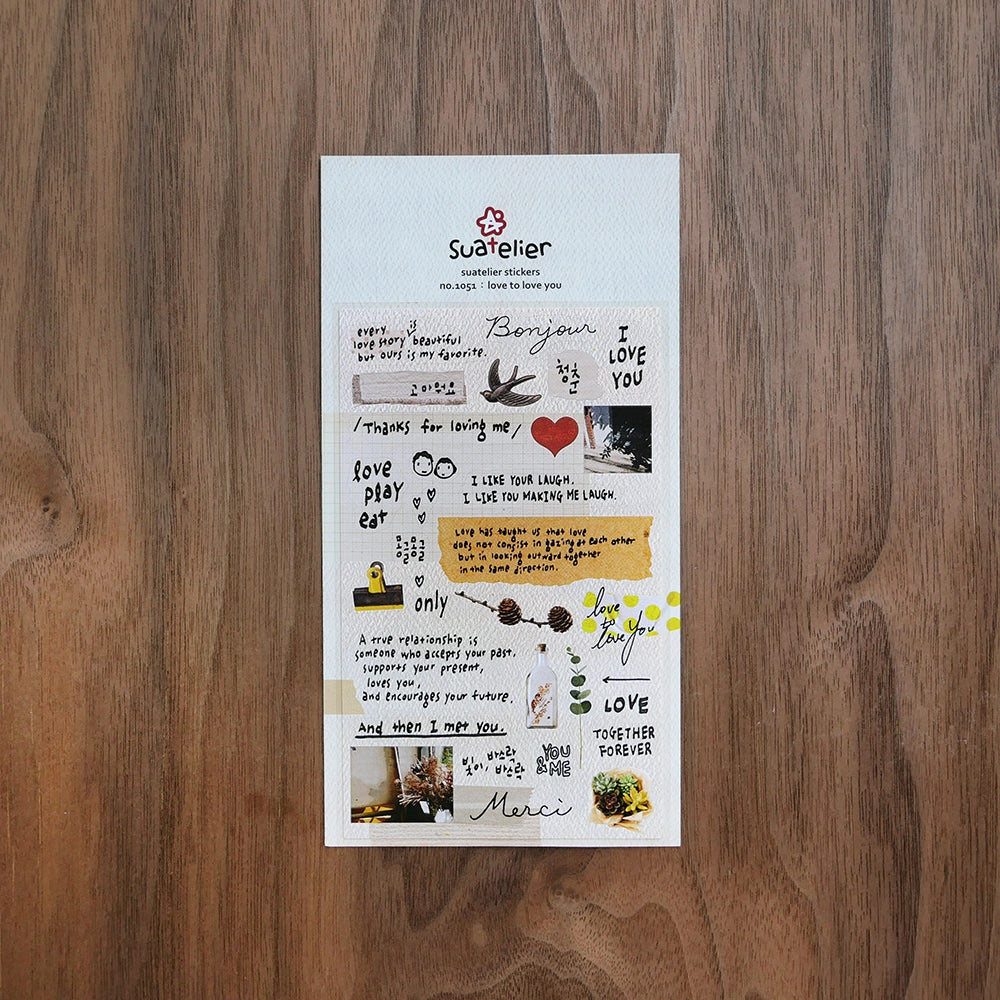 suatelier
suatelier stickers
no.1051 : love to love you
every is
love story beautiful
but ours is my favorite.
Bonjour
I
LOVE
YOU
고마워요
청춘
/Thanks for loving me/
love
play
eat
I LIKE YOUR LAUGH.
I LIKE YOU MAKING ME LAUGH.
Love has taught us that love
does not consist in gazing at each other
but in looking outward together
in the same direction.
몽글몽글
only
love
to
love you
A true relationship is
someone who accepts your past,
supports your present,
loves you,
and encourages your future.
And then I met you.
LOVE
TOGETHER
FOREVER
빛이, 바스락
바스락
YOU
&ME
Merci